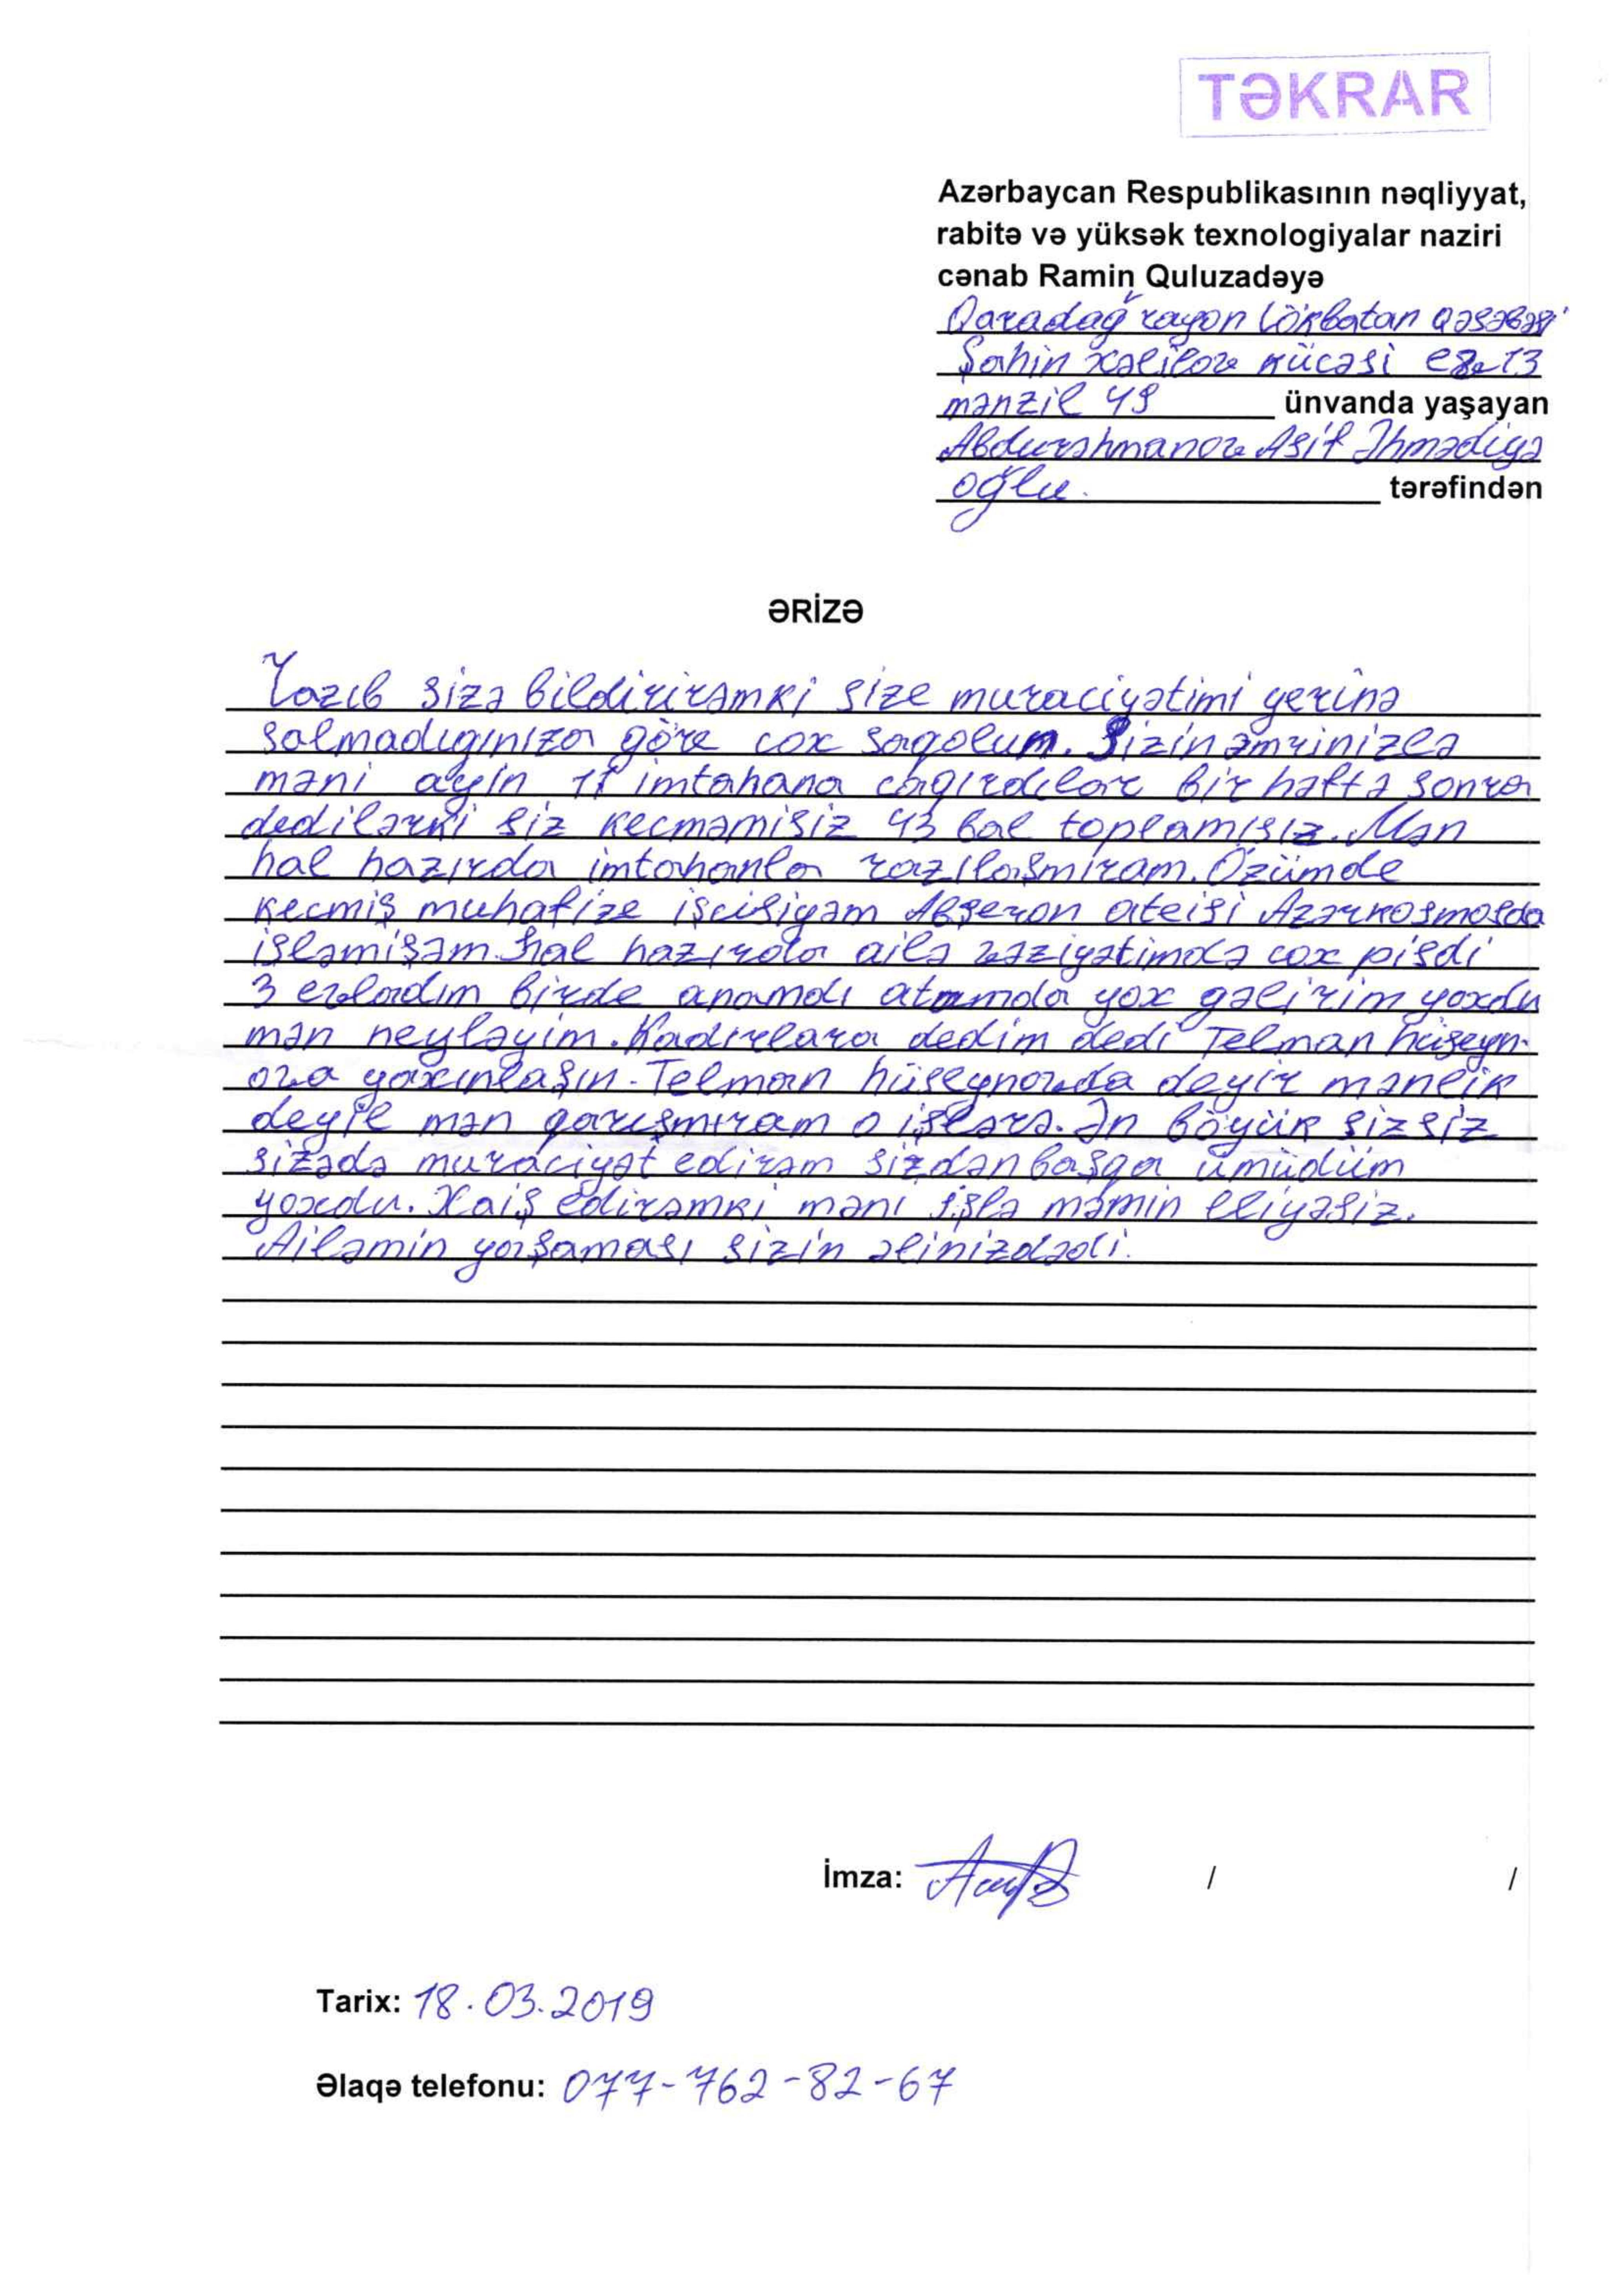 TƏKRAR
Azərbaycan Respublikasının nəqliyyat,
rabitə və yüksək texnologiyalar naziri
cənab Ramin Quluzadəyə
Qaradağ rayon Lökbatan qəsəbəsi
Şahin Xəlilov küçəsi ev 13
mənzil 49 ünvanda yaşayan
Abdurəhmanov Asif Əhmədiyə
oğlu. tərəfindən
ƏRİZƏ
Yazıb sizə bildirirəmki size muraciyətimi yerinə
salmadıgınıza göre cox sagolum. Sizin əmrinizlə
məni ayin 11 imtahana cagırdılar bir həftə sonra
dedilərki siz kecməmisiz 43 bal toplamısız. Mən
hal hazırda imtahanla razılaşmıram. Özümde
kecmiş muhafize işcisiyəm Abşeron ateisi Azərkosmosda
işləmişəm. hal hazırda ailə vəziyətimdə cox pisdi
3 evladım birde anamdı atamda yox gəlirim yoxdu
mən neyləyim. Kadırlara dedim dedi Telman hüseyn-
ova yaxınlaşın. Telman hüseynovda deyir mənlik
deyil mən qarışmıram o işlərə. Ən böyük sizsiz
sizədə muraciyət edirəm sizdən başqa ümüdüm
yoxdu. Xaiş edirəmki məni işlə məmin eliyəsiz.
Ailəmin yaşaması sizin əlinizdədi.
İmza: / /
Tarix: 18.03.2019
Əlaqə telefonu: 077-762-82-67